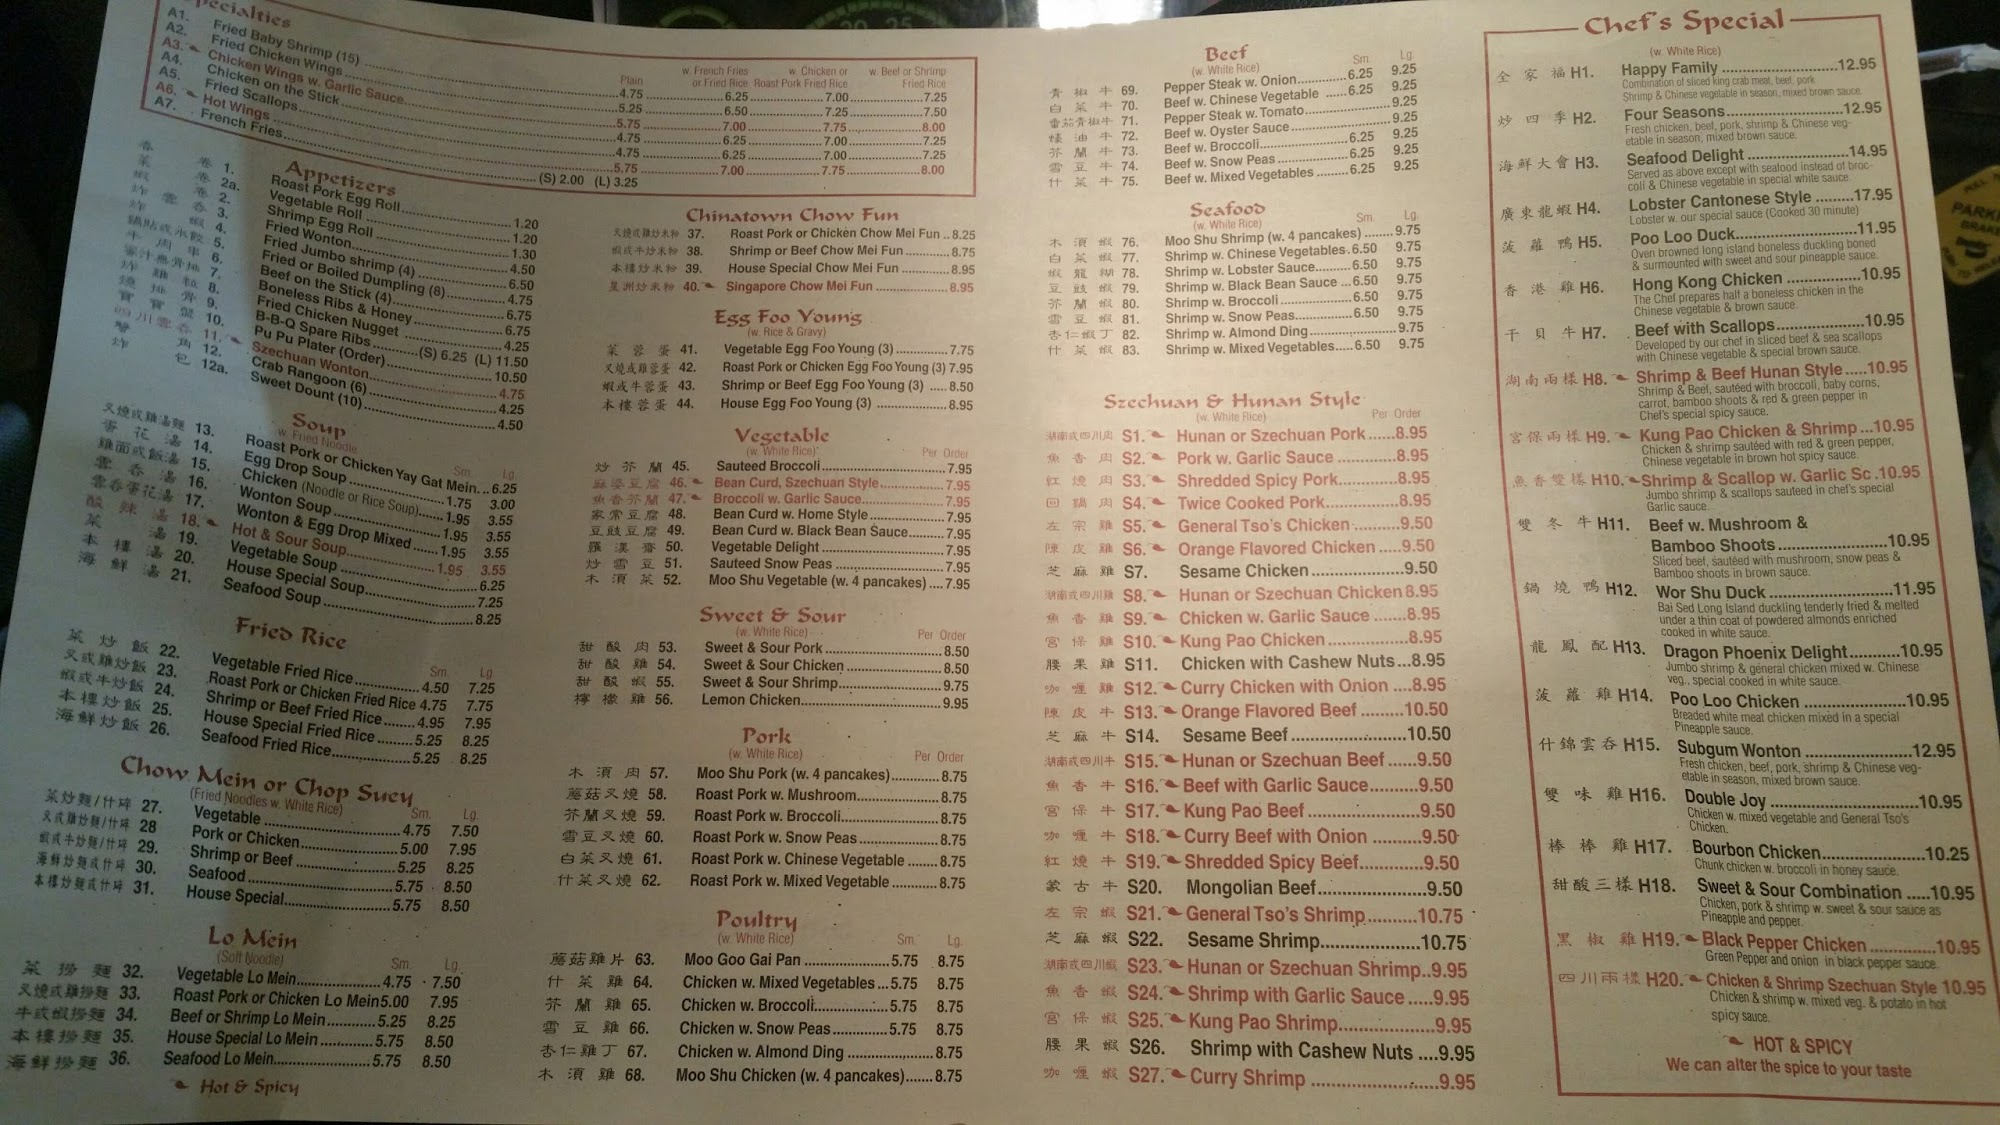 Specialties
Plain w. French Fries or Fried Rice w. Chicken or Roast Pork Fried Rice w. Beef or Shrimp Fried Rice
A1. Fried Baby Shrimp (15) 4.75 6.25 7.00 7.25
A2. Fried Chicken Wings 5.25 6.50 7.25 7.50
A3. Chicken Wings w. Garlic Sauce 5.75 7.00 7.75 8.00
A4. Chicken on the Stick 4.75 6.25 7.00 7.25
A5. Fried Scallops 4.75 6.25 7.00 7.25
A6. Hot Wings 5.75 7.00 7.75 8.00
A7. French Fries (S) 2.00 (L) 3.25
Appetizers
春 卷 1. Roast Pork Egg Roll 1.20
菜 卷 2a. Vegetable Roll 1.20
蝦 卷 2. Shrimp Egg Roll 1.30
炸 雲 吞 3. Fried Wonton 4.50
炸 蝦 4. Fried Jumbo shrimp (4) 6.50
鍋貼或水餃 5. Fried or Boiled Dumpling (8) 4.75
牛 肉 串 6. Beef on the Stick (4) 6.75
蜜汁無骨排 7. Boneless Ribs & Honey 6.75
炸 雞 粒 8. Fried Chicken Nugget 4.25
燒 排 骨 9. B-B-Q Spare Ribs (S) 6.25 (L) 11.50
寶 寶 盤 10. Pu Pu Plater (Order) 10.50
四川雲吞 11. Szechuan Wonton 4.75
蟹 角 12. Crab Rangoon (6) 4.25
炸 包 12a. Sweet Dount (10) 4.50
Soup
w. Fried Noodle
Sm. Lg.
叉燒或雞湯麵 13. Roast Pork or Chicken Yay Gat Mein 6.25
蛋 花 湯 14. Egg Drop Soup 1.75 3.00
雞面或飯湯 15. Chicken (Noodle or Rice Soup) 1.95 3.55
雲 吞 湯 16. Wonton Soup 1.95 3.55
雲吞蛋花湯 17. Wonton & Egg Drop Mixed 1.95 3.55
酸 辣 湯 18. Hot & Sour Soup 1.95 3.55
菜 湯 19. Vegetable Soup 6.25
本 樓 湯 20. House Special Soup 7.25
海 鮮 湯 21. Seafood Soup 8.25
Fried Rice
Sm. Lg.
菜 炒 飯 22. Vegetable Fried Rice 4.50 7.25
叉或雞炒飯 23. Roast Pork or Chicken Fried Rice 4.75 7.75
蝦或牛炒飯 24. Shrimp or Beef Fried Rice 4.95 7.95
本樓炒飯 25. House Special Fried Rice 5.25 8.25
海鮮炒飯 26. Seafood Fried Rice 5.25 8.25
Chow Mein or Chop Suey
(Fried Noodles w. White Rice)
Sm. Lg.
菜炒麵/什碎 27. Vegetable 4.75 7.50
叉或雞炒麵/什碎 28 Pork or Chicken 5.00 7.95
蝦或牛炒麵/什碎 29. Shrimp or Beef 5.25 8.25
海鮮炒麵或什碎 30. Seafood 5.75 8.50
本樓炒麵或什碎 31. House Special 5.75 8.50
Lo Mein
(Soft Noodle)
Sm. Lg.
菜 撈 麵 32. Vegetable Lo Mein 4.75 7.50
叉燒或雞撈麵 33. Roast Pork or Chicken Lo Mein 5.00 7.95
牛或蝦撈麵 34. Beef or Shrimp Lo Mein 5.25 8.25
本 樓 撈 麵 35. House Special Lo Mein 5.75 8.50
海 鮮 撈 麵 36. Seafood Lo Mein 5.75 8.50
Hot & Spicy
Chinatown Chow Fun
叉燒或雞炒米粉 37. Roast Pork or Chicken Chow Mei Fun 8.25
蝦或牛炒米粉 38. Shrimp or Beef Chow Mei Fun 8.75
本樓炒米粉 39. House Special Chow Mei Fun 8.95
星洲炒米粉 40. Singapore Chow Mei Fun 8.95
Egg Foo Young
(w. Rice & Gravy)
菜 蓉 蛋 41. Vegetable Egg Foo Young (3) 7.75
叉燒或雞蓉蛋 42. Roast Pork or Chicken Egg Foo Young (3) 7.95
蝦或牛蓉蛋 43. Shrimp or Beef Egg Foo Young (3) 8.50
本 樓 蓉 蛋 44. House Egg Foo Young (3) 8.95
Vegetable
(w. White Rice)
Per Order
炒 芥 蘭 45. Sauteed Broccoli 7.95
麻婆豆腐 46. Bean Curd, Szechuan Style 7.95
魚香芥蘭 47. Broccoli w. Garlic Sauce 7.95
家常豆腐 48. Bean Curd w. Home Style 7.95
豆豉豆腐 49. Bean Curd w. Black Bean Sauce 7.95
羅 漢 齋 50. Vegetable Delight 7.95
炒 雪 豆 51. Sauteed Snow Peas 7.95
木 須 菜 52. Moo Shu Vegetable (w. 4 pancakes) 7.95
Sweet & Sour
(w. White Rice)
Per Order
甜 酸 肉 53. Sweet & Sour Pork 8.50
甜 酸 雞 54. Sweet & Sour Chicken 8.50
甜 酸 蝦 55. Sweet & Sour Shrimp 9.75
檸 檬 雞 56. Lemon Chicken 9.95
Pork
(w. White Rice)
Per Order
木 須 肉 57. Moo Shu Pork (w. 4 pancakes) 8.75
蘑菇叉燒 58. Roast Pork w. Mushroom 8.75
芥蘭叉燒 59. Roast Pork w. Broccoli 8.75
雪豆叉燒 60. Roast Pork w. Snow Peas 8.75
白菜叉燒 61. Roast Pork w. Chinese Vegetable 8.75
什菜叉燒 62. Roast Pork w. Mixed Vegetable 8.75
Poultry
(w. White Rice)
Sm. Lg.
蘑菇雞片 63. Moo Goo Gai Pan 5.75 8.75
什 菜 雞 64. Chicken w. Mixed Vegetables 5.75 8.75
芥 蘭 雞 65. Chicken w. Broccoli 5.75 8.75
雪 豆 雞 66. Chicken w. Snow Peas 5.75 8.75
杏仁雞丁 67. Chicken w. Almond Ding 8.75
木 須 雞 68. Moo Shu Chicken (w. 4 pancakes) 8.75
Beef
(w. White Rice)
Sm. Lg.
青 椒 牛 69. Pepper Steak w. Onion 6.25 9.25
白 菜 牛 70. Beef w. Chinese Vegetable 6.25 9.25
番茄青椒牛 71. Pepper Steak w. Tomato 9.25
蠔 油 牛 72. Beef w. Oyster Sauce 9.25
芥 蘭 牛 73. Beef w. Broccoli 6.25 9.25
雪 豆 牛 74. Beef w. Snow Peas 6.25 9.25
什 菜 牛 75. Beef w. Mixed Vegetables 6.25 9.25
Seafood
(w. White Rice)
Sm. Lg.
木 須 蝦 76. Moo Shu Shrimp (w. 4 pancakes) 9.75
白 菜 蝦 77. Shrimp w. Chinese Vegetables 6.50 9.75
蝦 龍 糊 78. Shrimp w. Lobster Sauce 6.50 9.75
豆 豉 蝦 79. Shrimp w. Black Bean Sauce 6.50 9.75
芥 蘭 蝦 80. Shrimp w. Broccoli 6.50 9.75
雪 豆 蝦 81. Shrimp w. Snow Peas 6.50 9.75
杏仁蝦丁 82. Shrimp w. Almond Ding 9.75
什 菜 蝦 83. Shrimp w. Mixed Vegetables 6.50 9.75
Szechuan & Hunan Style
(w. White Rice)
Per Order
湖南或四川肉 S1. Hunan or Szechuan Pork 8.95
魚 香 肉 S2. Pork w. Garlic Sauce 8.95
紅 燒 肉 S3. Shredded Spicy Pork 8.95
回 鍋 肉 S4. Twice Cooked Pork 8.95
左 宗 雞 S5. General Tso's Chicken 9.50
陳 皮 雞 S6. Orange Flavored Chicken 9.50
芝 麻 雞 S7. Sesame Chicken 9.50
湖南或四川雞 S8. Hunan or Szechuan Chicken 8.95
魚 香 雞 S9. Chicken w. Garlic Sauce 8.95
宮 保 雞 S10. Kung Pao Chicken 8.95
腰 果 雞 S11. Chicken with Cashew Nuts 8.95
咖 喱 雞 S12. Curry Chicken with Onion 8.95
陳 皮 牛 S13. Orange Flavored Beef 10.50
芝 麻 牛 S14. Sesame Beef 10.50
湖南或四川牛 S15. Hunan or Szechuan Beef 9.50
魚 香 牛 S16. Beef with Garlic Sauce 9.50
宮 保 牛 S17. Kung Pao Beef 9.50
咖 喱 牛 S18. Curry Beef with Onion 9.50
紅 燒 牛 S19. Shredded Spicy Beef 9.50
蒙 古 牛 S20. Mongolian Beef 9.50
左 宗 蝦 S21. General Tso's Shrimp 10.75
芝 麻 蝦 S22. Sesame Shrimp 10.75
湖南或四川蝦 S23. Hunan or Szechuan Shrimp 9.95
魚 香 蝦 S24. Shrimp with Garlic Sauce 9.95
宮 保 蝦 S25. Kung Pao Shrimp 9.95
腰 果 蝦 S26. Shrimp with Cashew Nuts 9.95
咖 喱 蝦 S27. Curry Shrimp 9.95
Chef's Special
(w. White Rice)
全 家 福 H1. Happy Family 12.95
Combination of sliced king crab meat, beef, pork
Shrimp & Chinese vegetable in season, mixed brown sauce.
炒 四 季 H2. Four Seasons 12.95
Fresh chicken, beef, pork, shrimp & Chinese veg-
etable in season, mixed brown sauce.
海鮮大會 H3. Seafood Delight 14.95
Served as above except with seafood instead of broc-
coli & Chinese vegetable in special white sauce.
廣東龍蝦 H4. Lobster Cantonese Style 17.95
Lobster w. our special sauce (Cooked 30 minute)
菠 蘿 鴨 H5. Poo Loo Duck 11.95
Oven browned long island boneless duckling boned
& surmounted with sweet and sour pineapple sauce.
香 港 雞 H6. Hong Kong Chicken 10.95
The Chef prepares half a boneless chicken in the
Chinese vegetable & brown sauce.
干 貝 牛 H7. Beef with Scallops 10.95
Developed by our chef in sliced beef & sea scallops
with Chinese vegetable & special brown sauce.
湖南兩樣 H8. Shrimp & Beef Hunan Style 10.95
Shrimp & Beef, sautéed with broccoli, baby corns,
carrot, bamboo shoots & red & green pepper in
Chef's special spicy sauce.
宮保兩樣 H9. Kung Pao Chicken & Shrimp 10.95
Chicken & shrimp sautéed with red & green pepper,
Chinese vegetable in brown hot spicy sauce.
魚香雙樣 H10. Shrimp & Scallop w. Garlic Sc 10.95
Jumbo shrimp & scallops sauteed in chef's special
Garlic sauce.
雙 冬 牛 H11. Beef w. Mushroom &
Bamboo Shoots 10.95
Sliced beef, sautéed with mushroom, snow peas &
Bamboo shoots in brown sauce.
鍋 燒 鴨 H12. Wor Shu Duck 11.95
Bai Sed Long Island duckling tenderly fried & melted
under a thin coat of powdered almonds enriched
cooked in white sauce.
龍 鳳 配 H13. Dragon Phoenix Delight 10.95
Jumbo shrimp & general chicken mixed w. Chinese
veg., special cooked in white sauce.
菠 蘿 雞 H14. Poo Loo Chicken 10.95
Breaded white meat chicken mixed in a special
Pineapple sauce.
什錦雲吞 H15. Subgum Wonton 12.95
Fresh chicken, beef, pork, shrimp & Chinese veg-
etable in season, mixed brown sauce.
雙 味 雞 H16. Double Joy 10.95
Chicken w. mixed vegetable and General Tso's
Chicken.
棒 棒 雞 H17. Bourbon Chicken 10.25
Chunk chicken w. broccoli in honey sauce.
甜酸三樣 H18. Sweet & Sour Combination 10.95
Chicken, pork & shrimp w. sweet & sour sauce as
Pineapple and pepper.
黑 椒 雞 H19. Black Pepper Chicken 10.95
Green Pepper and onion in black pepper sauce.
四川兩樣 H20. Chicken & Shrimp Szechuan Style 10.95
Chicken & shrimp w. mixed veg. & potato in hot
spicy sauce.
HOT & SPICY
We can alter the spice to your taste
PARKING
BRAKE